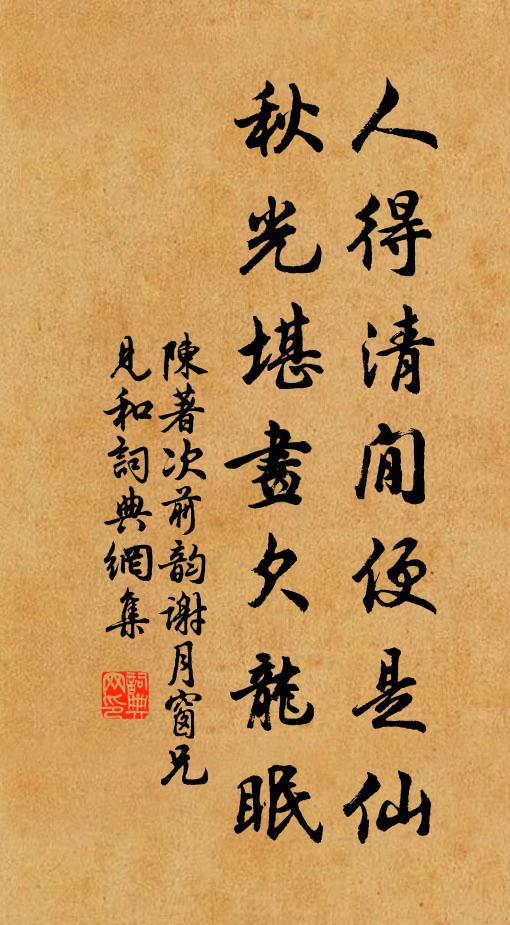 人得清閒便是仙
秋光堪畫欠龍眠
陳著次前韵謝月窗兄
見和詞典網集
詞典网印